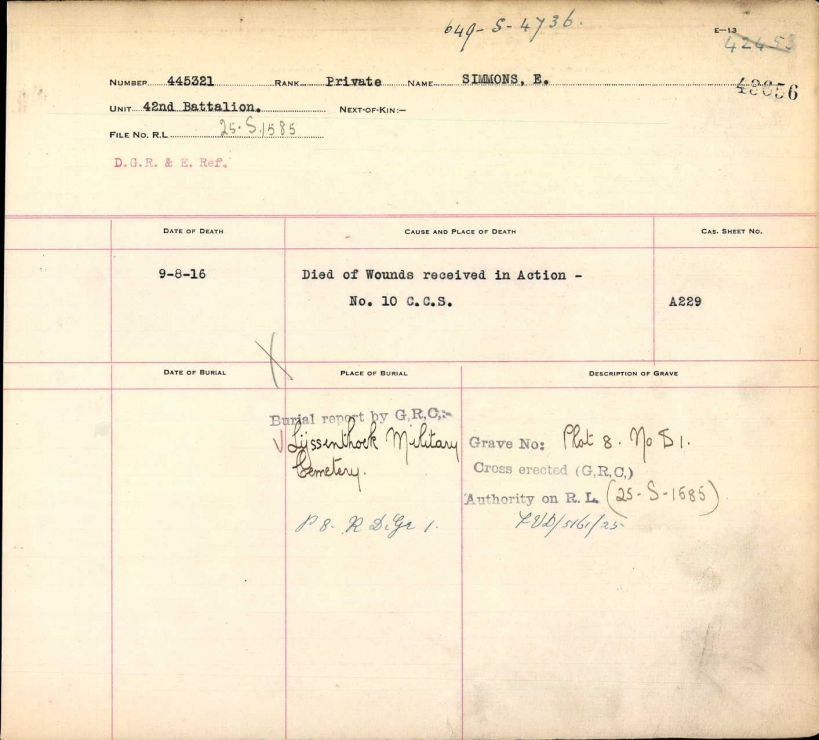 649-S-4736.
E-13
42453
NUMBER 445321 RANK Private NAME SIMMONS, E.
UNIT 42nd Battalion. NEXT-OF-KIN:—
FILE NO. R.L. 25-S.1585
D.G.R. & E. Ref.
DATE OF DEATH CAUSE AND PLACE OF DEATH CAS. SHEET NO.
9-8-16 Died of Wounds received in Action -
No. 10 C.C.S. A229
DATE OF BURIAL PLACE OF BURIAL DESCRIPTION OF GRAVE
Burial report by G.R.C.:-
Lijssenthoek Military Grave No: Plot 8. No D 1.
Cemetery. Cross erected (G.R.C.)
Authority on R. L. (25-S-1585)
P 8. R D. Gr 1.